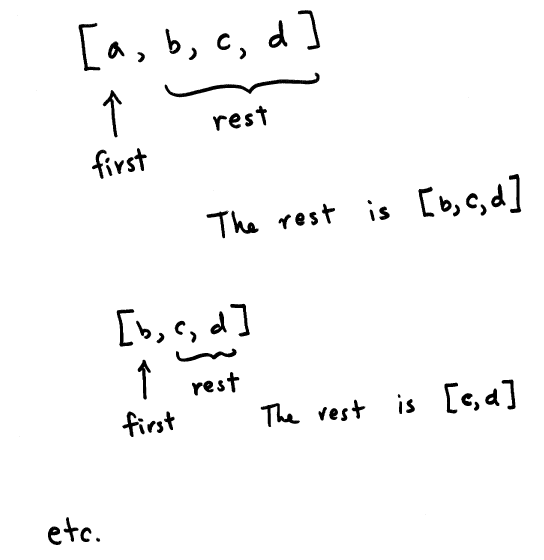 [a, b, c, d]
rest
first
The rest is [b,c,d]
[b, c, d]
rest
first
The rest is [c,d]
etc.